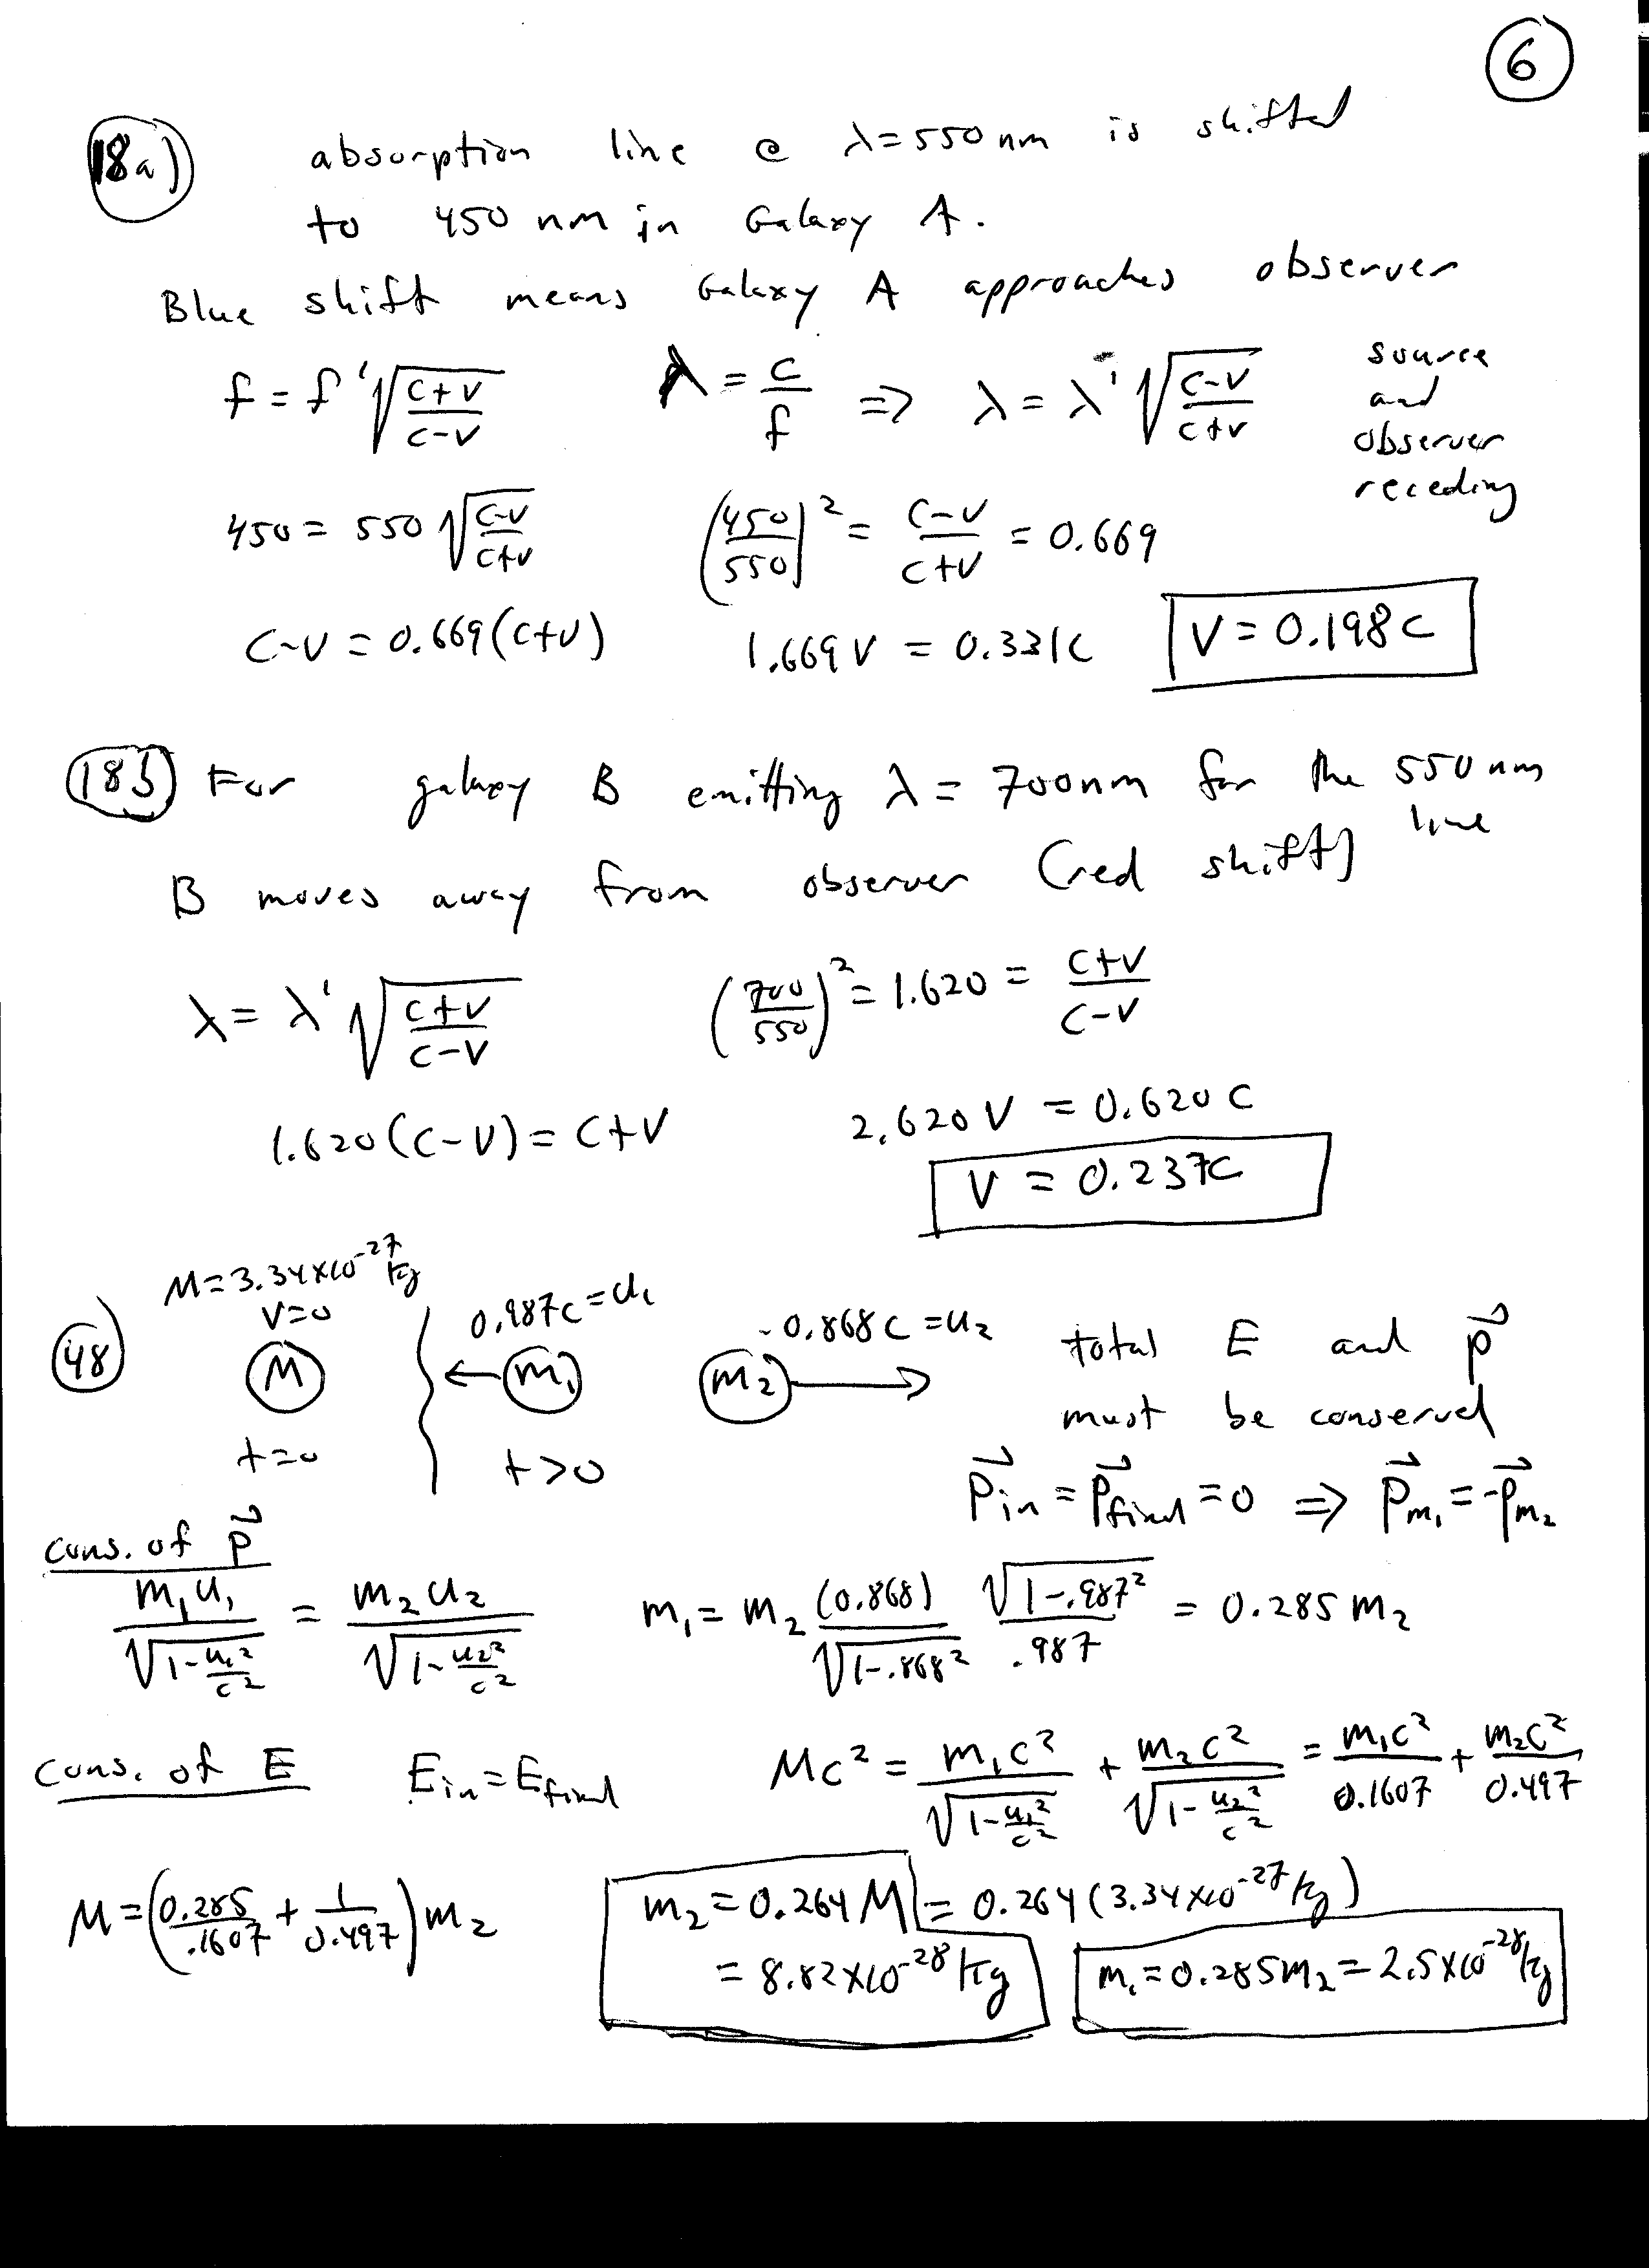 6
18a) absorption line @ λ=550 nm is shifted
to 450 nm in Galaxy A.
Blue shift means Galaxy A approaches observer
f = f' √((c+v)/(c-v))   λ = c/f ⇒ λ = λ' √((c-v)/(c+v))   source and observer receding
450 = 550 √((c-v)/(c+v))   (450/550)² = (c-v)/(c+v) = 0.669
c-v = 0.669(c+v)   1.669 v = 0.331c   v = 0.198c
18b) For galaxy B emitting λ = 700nm for the 550 nm line
B moves away from observer (red shift)
λ = λ' √((c+v)/(c-v))   (700/550)² = 1.620 = (c+v)/(c-v)
1.620(c-v) = c+v   2.620 v = 0.620 c
v = 0.237c
48) M=3.34×10⁻²⁷ kg
v=0   0.987c=u₁   -0.868c=u₂   total E and p⃗
M   ← m₁   m₂ →   must be conserved
t=0   t>0   p⃗in = p⃗final = 0 ⇒ p⃗m₁ = -p⃗m₂
cons. of p⃗
m₁u₁/√(1-u₁²/c²) = m₂u₂/√(1-u₂²/c²)   m₁ = m₂ (0.868)/√(1-.868²) √(1-.987²)/.987 = 0.285 m₂
cons. of E   Ein = Efinal   Mc² = m₁c²/√(1-u₁²/c²) + m₂c²/√(1-u₂²/c²) = m₁c²/0.1607 + m₂c²/0.497
M = (0.285/.1607 + 1/0.497) m₂   m₂ = 0.264 M = 0.264 (3.34×10⁻²⁷ kg)
= 8.82×10⁻²⁸ kg   m₁ = 0.285m₂ = 2.5×10⁻²⁸ kg